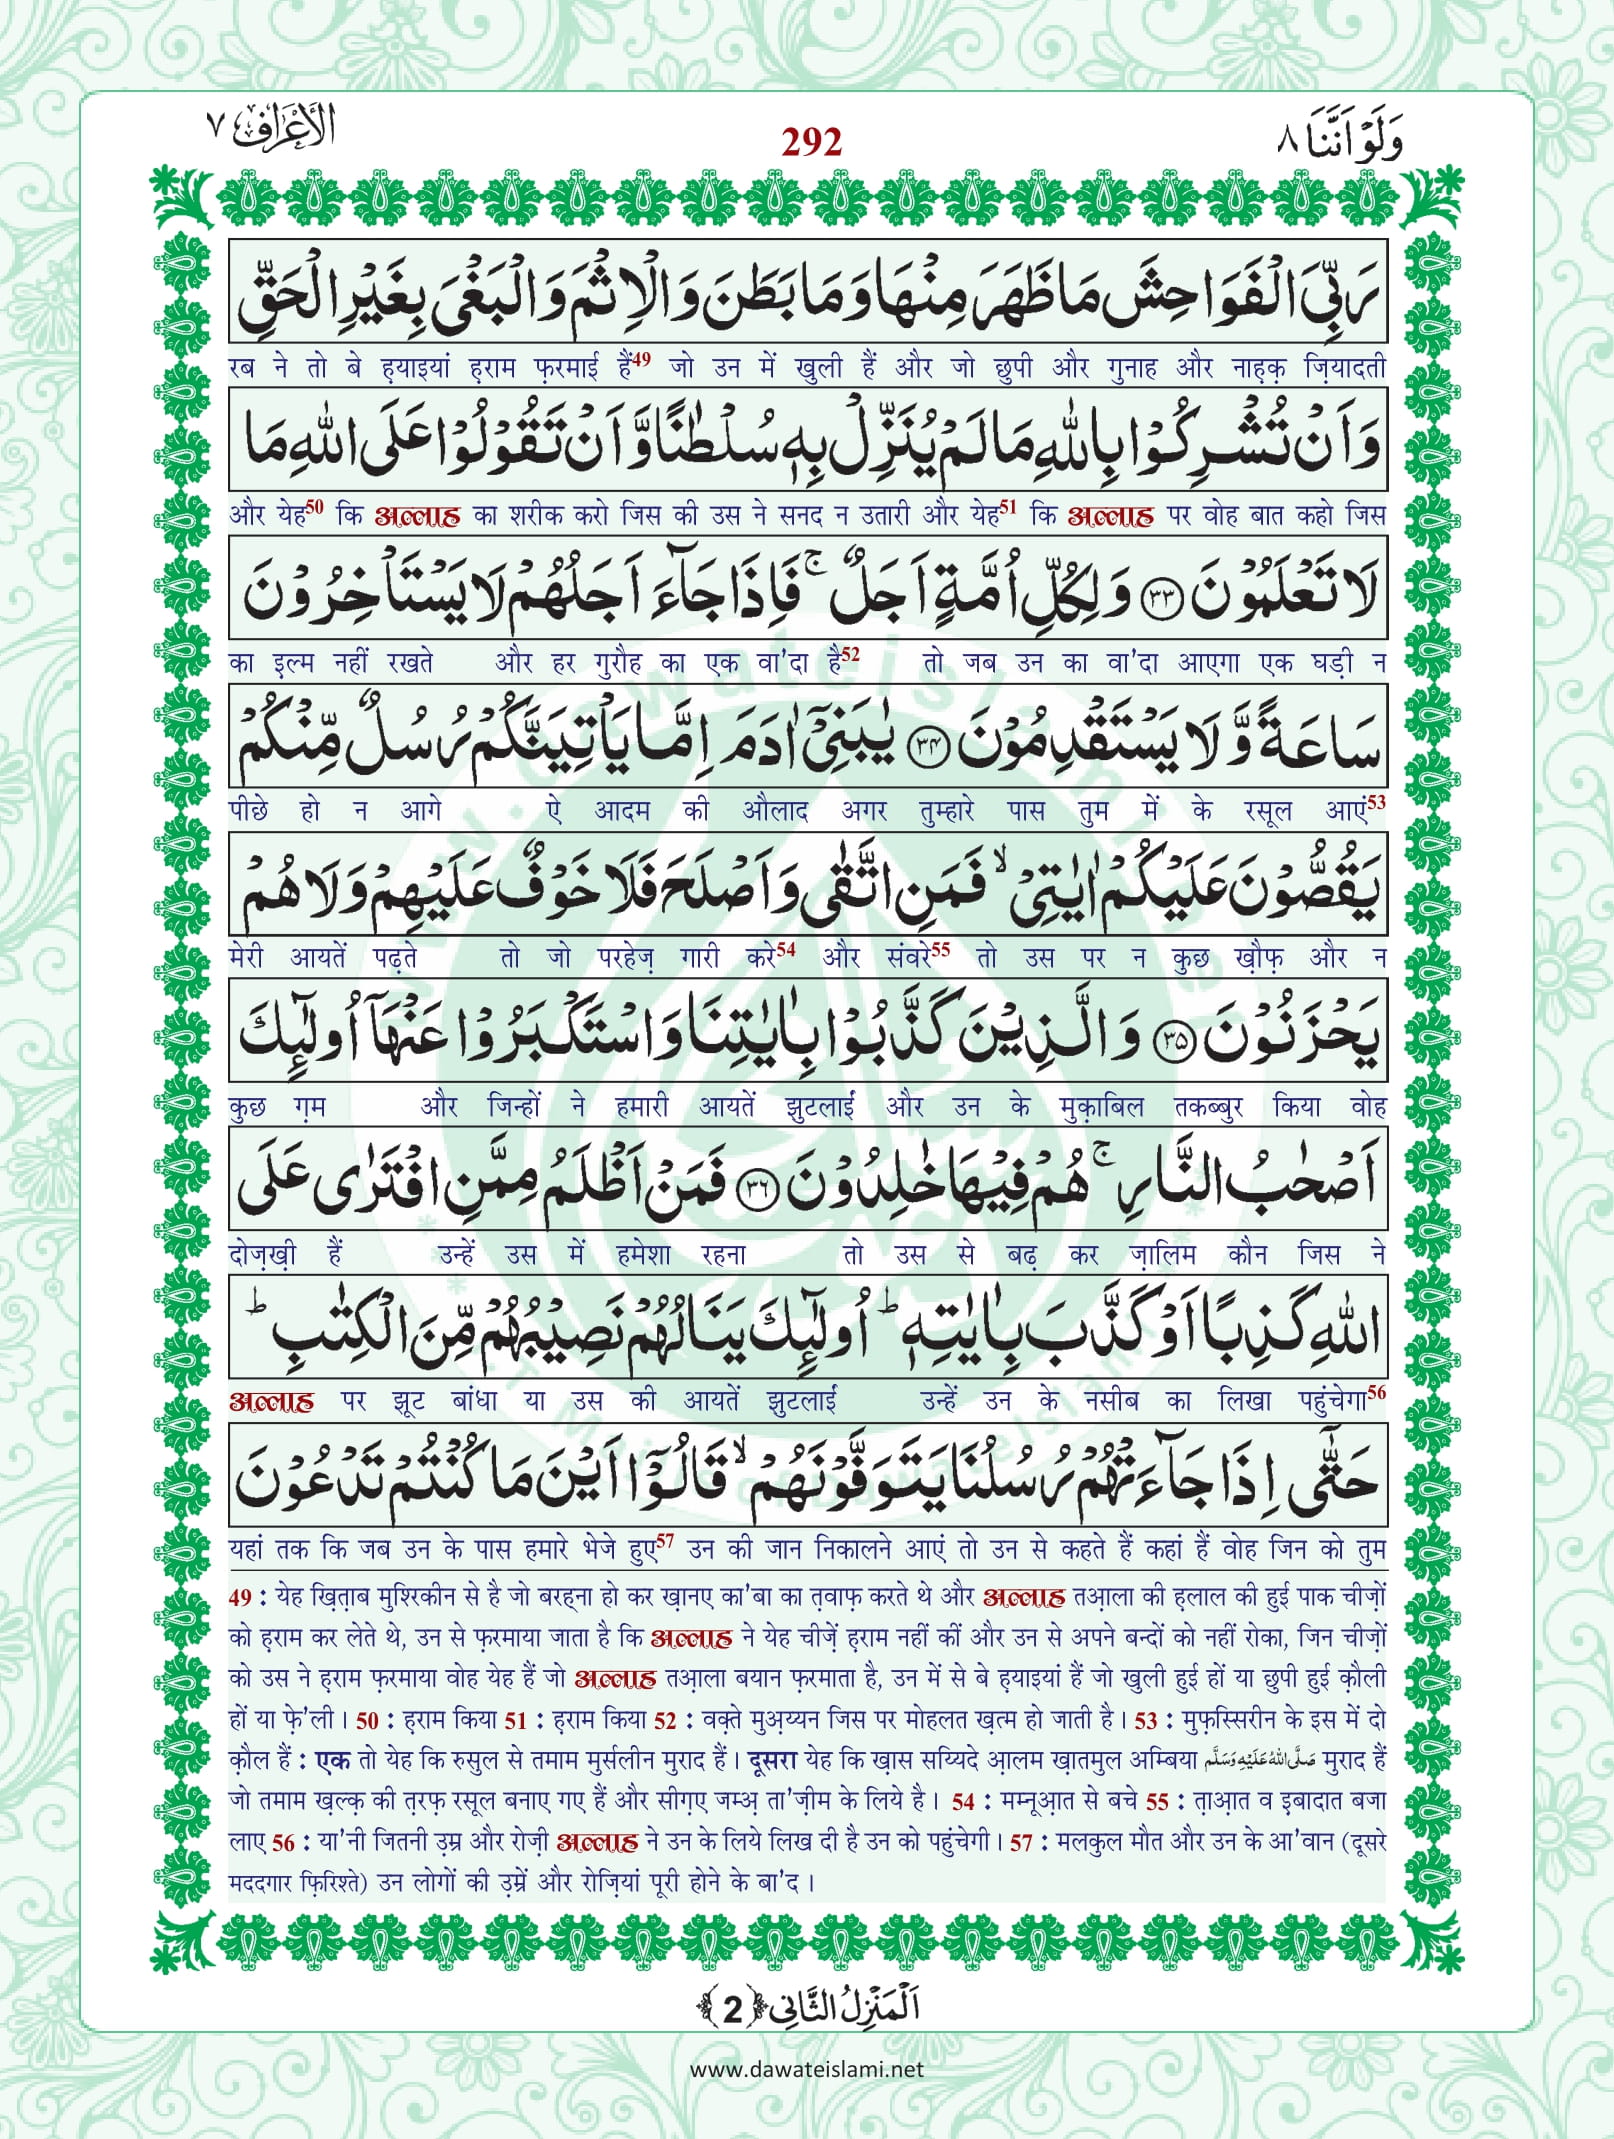 وَلَوْ اَنَّنَا ٨
292
الْاَعْرَاف ٧
رَبِّیَ الْفَوَاحِشَ مَا ظَهَرَ مِنْهَا وَ مَا بَطَنَ وَ الْاِثْمَ وَ الْبَغْیَ بِغَیْرِ الْحَقِّ
रब ने तो बे ह़याइयां ह़राम फ़रमाई हैं49 जो उन में खुली हैं और जो छुपी और गुनाह और नाह़क़ ज़ियादती
وَ اَنْ تُشْرِكُوْا بِاللّٰهِ مَا لَمْ یُنَزِّلْ بِهٖ سُلْطٰنًا وَّ اَنْ تَقُوْلُوْا عَلَی اللّٰهِ مَا
और येह50 कि अल्लाह का शरीक करो जिस की उस ने सनद न उतारी और येह51 कि अल्लाह पर वोह बात कहो जिस
لَا تَعْلَمُوْنَ ﴿۳۳﴾ وَ لِكُلِّ اُمَّةٍ اَجَلٌ ۚ فَاِذَا جَآءَ اَجَلُهُمْ لَا یَسْتَاْخِرُوْنَ
का इल्म नहीं रखते और हर गुरौह का एक वा'दा है52 तो जब उन का वा'दा आएगा एक घड़ी न
سَاعَةً وَّ لَا یَسْتَقْدِمُوْنَ ﴿۳۴﴾ یٰبَنِیْۤ اٰدَمَ اِمَّا یَاْتِیَنَّكُمْ رُسُلٌ مِّنْكُمْ
पीछे हो न आगे ऐ आदम की औलाद अगर तुम्हारे पास तुम में के रसूल आएं53
یَقُصُّوْنَ عَلَیْكُمْ اٰیٰتِیْ ۙ فَمَنِ اتَّقٰی وَ اَصْلَحَ فَلَا خَوْفٌ عَلَیْهِمْ وَ لَا هُمْ
मेरी आयतें पढ़ते तो जो परहेज़ गारी करे54 और संवरे55 तो उस पर न कुछ ख़ौफ़ और न
یَحْزَنُوْنَ ﴿۳۵﴾ وَ الَّذِیْنَ كَذَّبُوْا بِاٰیٰتِنَا وَ اسْتَكْبَرُوْا عَنْهَاۤ اُولٰٓىِٕكَ
कुछ ग़म और जिन्हों ने हमारी आयतें झुटलाईं और उन के मुक़ाबिल तकब्बुर किया वोह
اَصْحٰبُ النَّارِ ۚ هُمْ فِیْهَا خٰلِدُوْنَ ﴿۳۶﴾ فَمَنْ اَظْلَمُ مِمَّنِ افْتَرٰی عَلَی
दोज़ख़ी हैं उन्हें उस में हमेशा रहना तो उस से बढ़ कर ज़ालिम कौन जिस ने
اللّٰهِ كَذِبًا اَوْ كَذَّبَ بِاٰیٰتِهٖ ؕ اُولٰٓىِٕكَ یَنَالُهُمْ نَصِیْبُهُمْ مِّنَ الْكِتٰبِ ؕ
अल्लाह पर झूट बांधा या उस की आयतें झुटलाईं उन्हें उन के नसीब का लिखा पहुंचेगा56
حَتّٰۤی اِذَا جَآءَتْهُمْ رُسُلُنَا یَتَوَفَّوْنَهُمْ ۙ قَالُوْۤا اَیْنَ مَا كُنْتُمْ تَدْعُوْنَ
यहां तक कि जब उन के पास हमारे भेजे हुए57 उन की जान निकालने आएं तो उन से कहते हैं कहां हैं वोह जिन को तुम
49 : येह ख़ित़ाब मुश्रिकीन से है जो बरह्ना हो कर ख़ानए का'बा का त़वाफ़ करते थे और अल्लाह तआ़ला की ह़लाल की हुई पाक चीज़ों
को ह़राम कर लेते थे, उन से फ़रमाया जाता है कि अल्लाह ने येह चीज़ें ह़राम नहीं कीं और उन से अपने बन्दों को नहीं रोका, जिन चीज़ों
को उस ने ह़राम फ़रमाया वोह येह हैं जो अल्लाह तआ़ला बयान फ़रमाता है, उन में से बे ह़याइयां हैं जो खुली हुई हों या छुपी हुई क़ौली
हों या फ़े'ली । 50 : ह़राम किया 51 : ह़राम किया 52 : वक़्ते मुअ़य्यन जिस पर मोहलत ख़त्म हो जाती है । 53 : मुफ़स्सिरीन के इस में दो
क़ौल हैं : एक तो येह कि रुसुल से तमाम मुर्सलीन मुराद हैं । दूसरा येह कि ख़ास सय्यिदे आ़लम ख़ातमुल अम्बिया صَلَّی اللهُ عَلَیْهِ وَسَلَّم मुराद हैं
जो तमाम ख़ल्क़ की त़रफ़ रसूल बनाए गए हैं और सीग़ए जम्अ़ ता'ज़ीम के लिये है । 54 : मम्नूआ़त से बचे 55 : त़ाआ़त व इबादात बजा
लाए 56 : या'नी जितनी उ़म्र और रोज़ी अल्लाह ने उन के लिये लिख दी है उन को पहुंचेगी । 57 : मलकुल मौत और उन के आ'वान (दूसरे
मददगार फ़िरिश्ते) उन लोगों की उ़म्रें और रोज़ियां पूरी होने के बा'द ।
اَلْمَنْزِلُ الثَّانِی ﴿2﴾
www.dawateislami.net